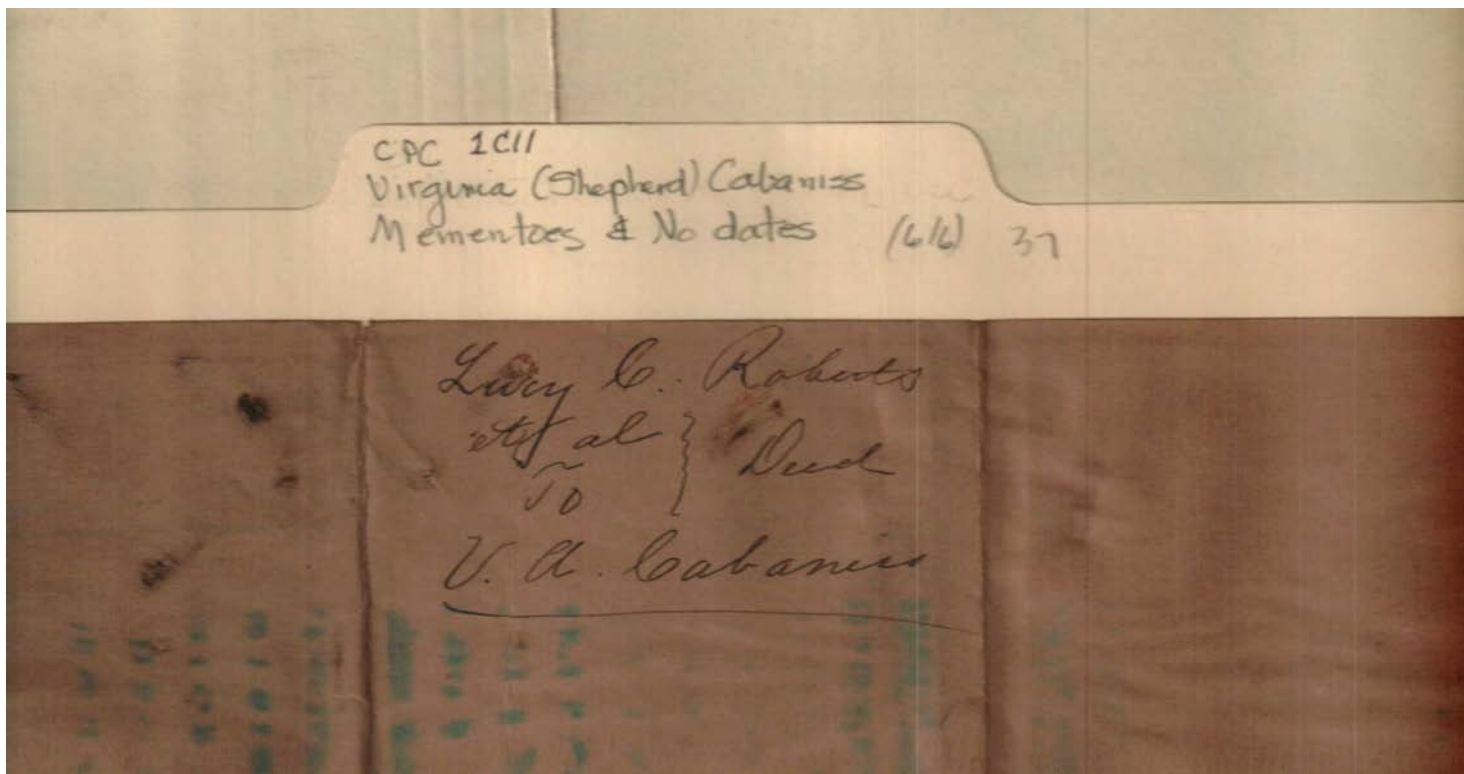 CPC 1C11
Virginia (Shepherd) Cabaniss
Mementoes & No dates (6/6) 37
Lucy C. Roberts
et al } Deed
To
V. A. Cabaniss